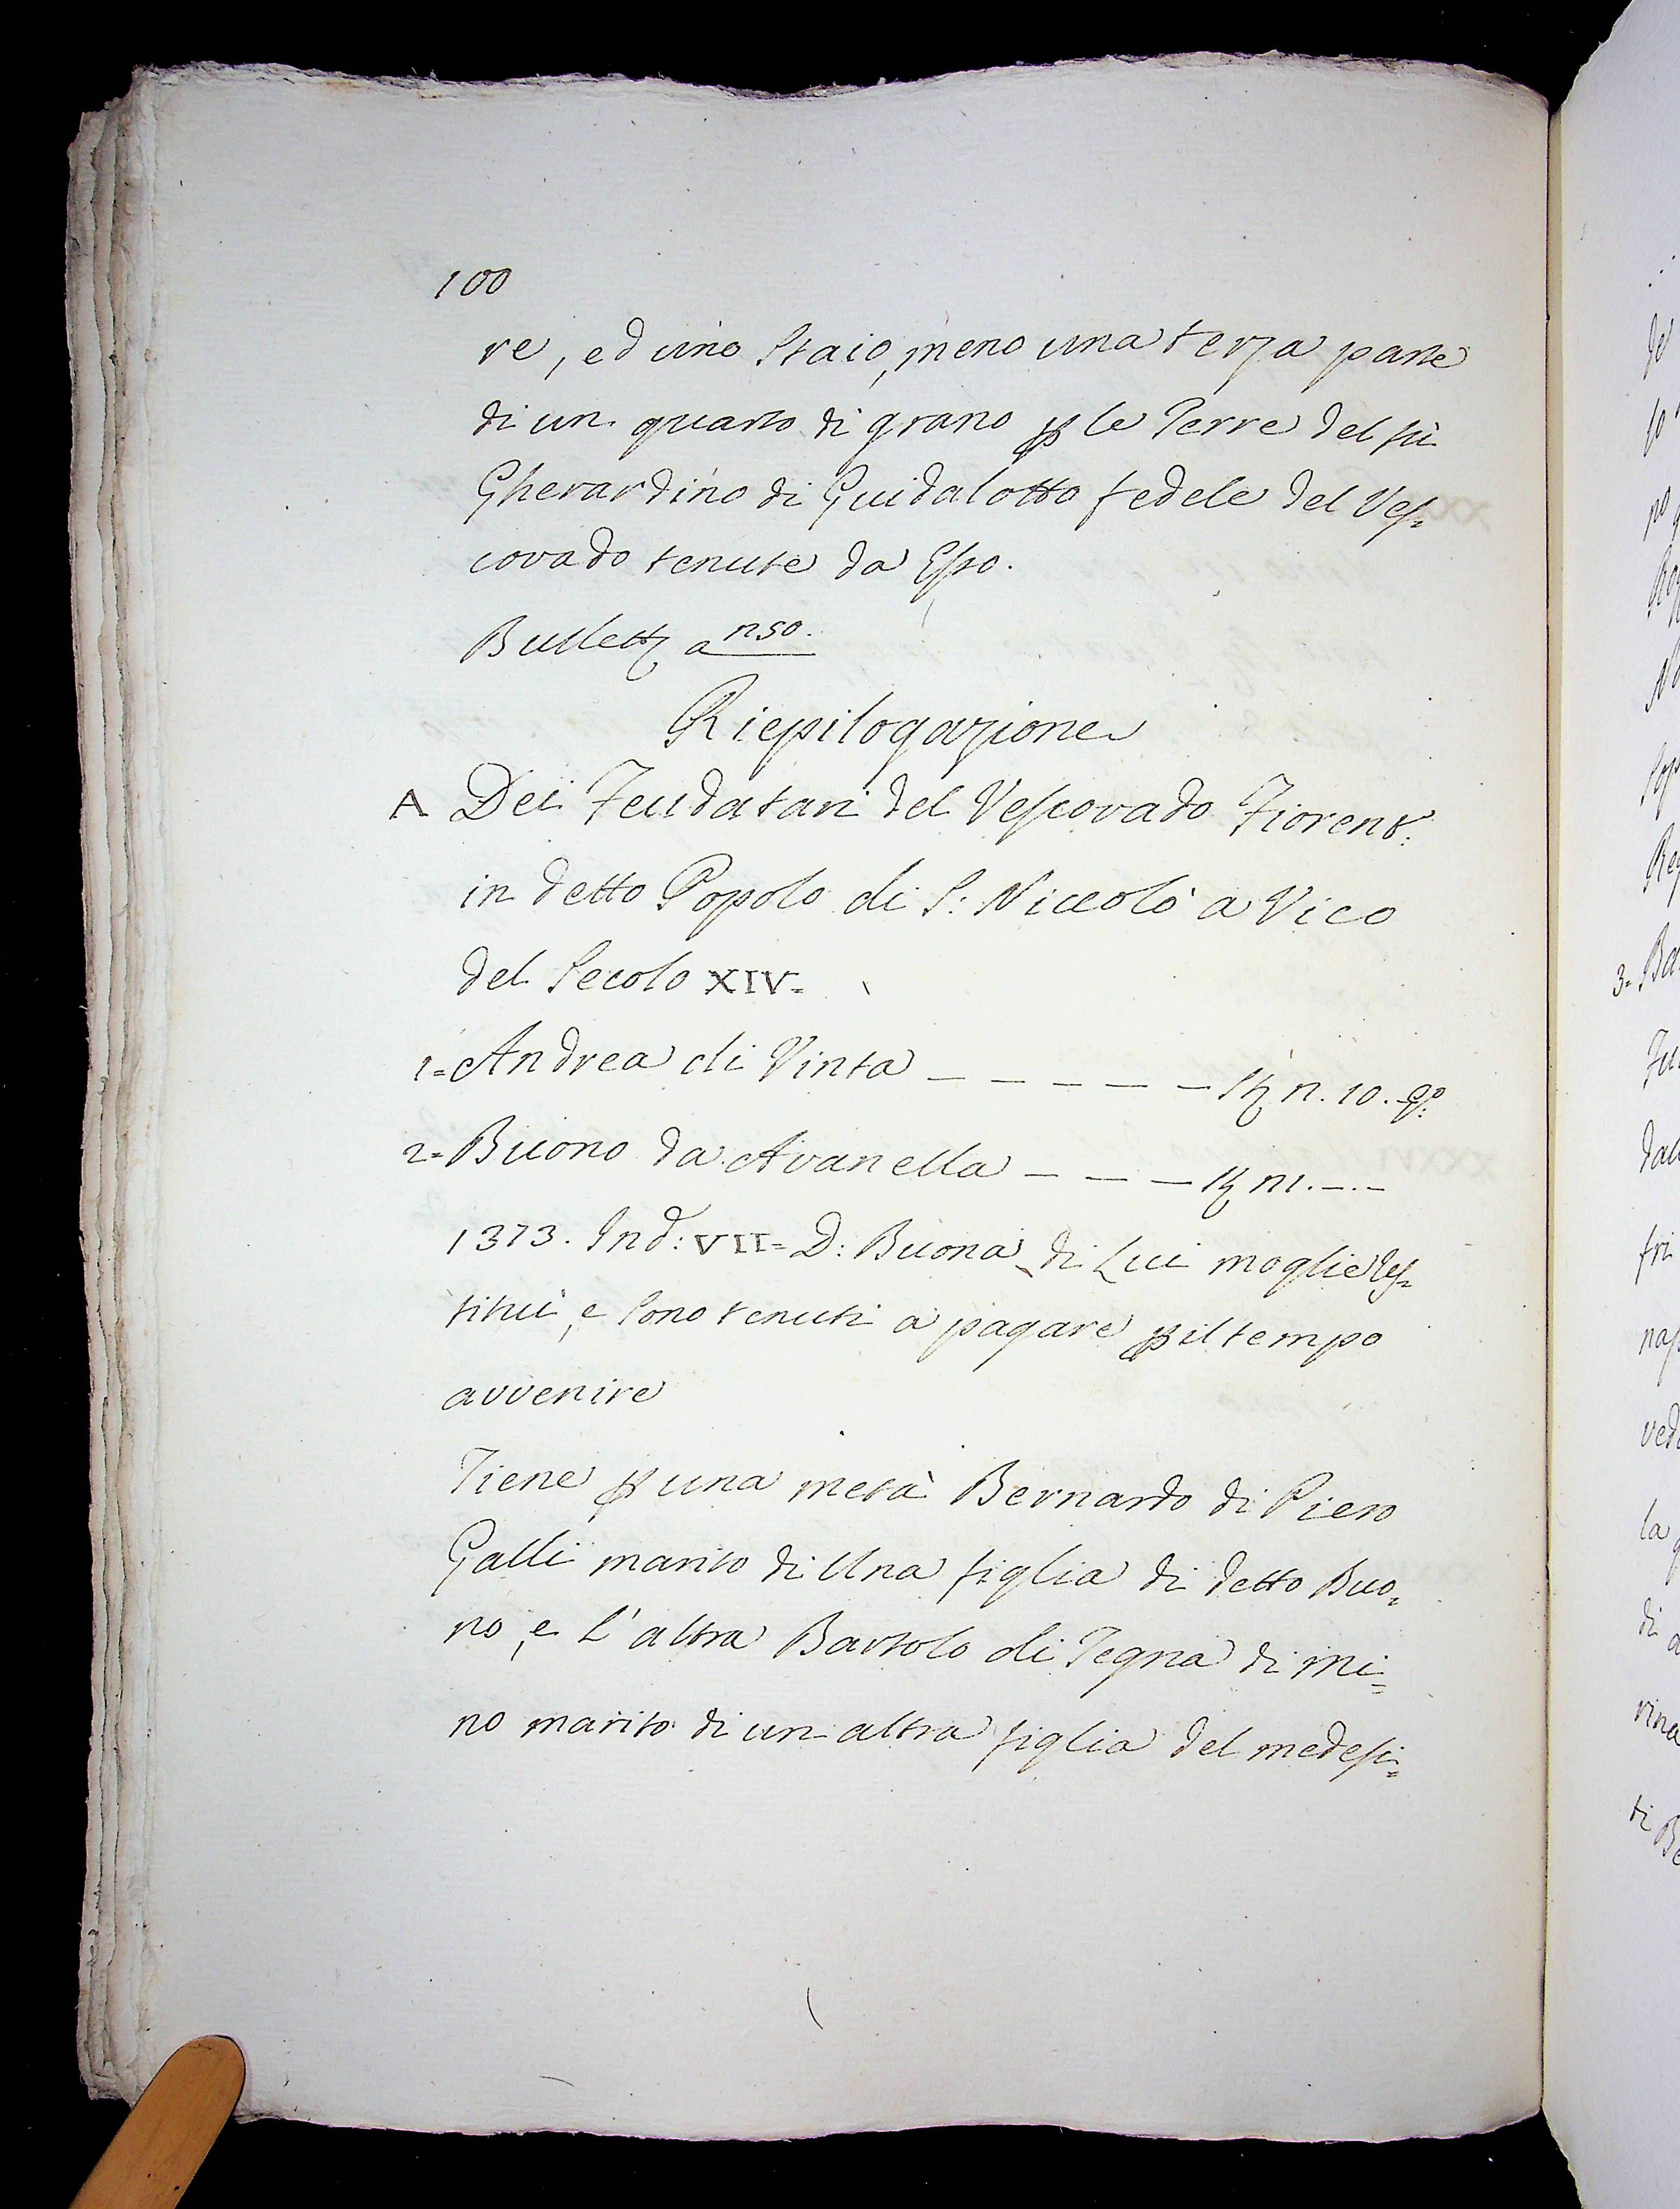 100
re, ed uno Staio, meno una terza parte
di un quarto di grano p le Terre del fù
Gherardino di Guidalotto fedele del Ves=
covado tenute da Esso.
Bullett a 150.
Riepilogazione
A Dei Feudatari del Vescovado Fiorent:
in detto Popolo di S: Niccolò a Vico
del Secolo XIV=
1= Andrea di Vinta _ _ _ _ _ _ St n. 10.
2= Buono da Avanella _ _ _ St
1373. Ind: VII= D: Buona di Lui moglie res=
tituì, e sono tenuti a pagare p il tempo
avvenire
Tiene p una metà Bernardo di Piero
Galli marito di Una figlia di detto Buo=
no, e l'altra Bartolo di Tegna di Mi=
no marito di un altra figlia del medesi=
3= Ba
la
di
ti Be